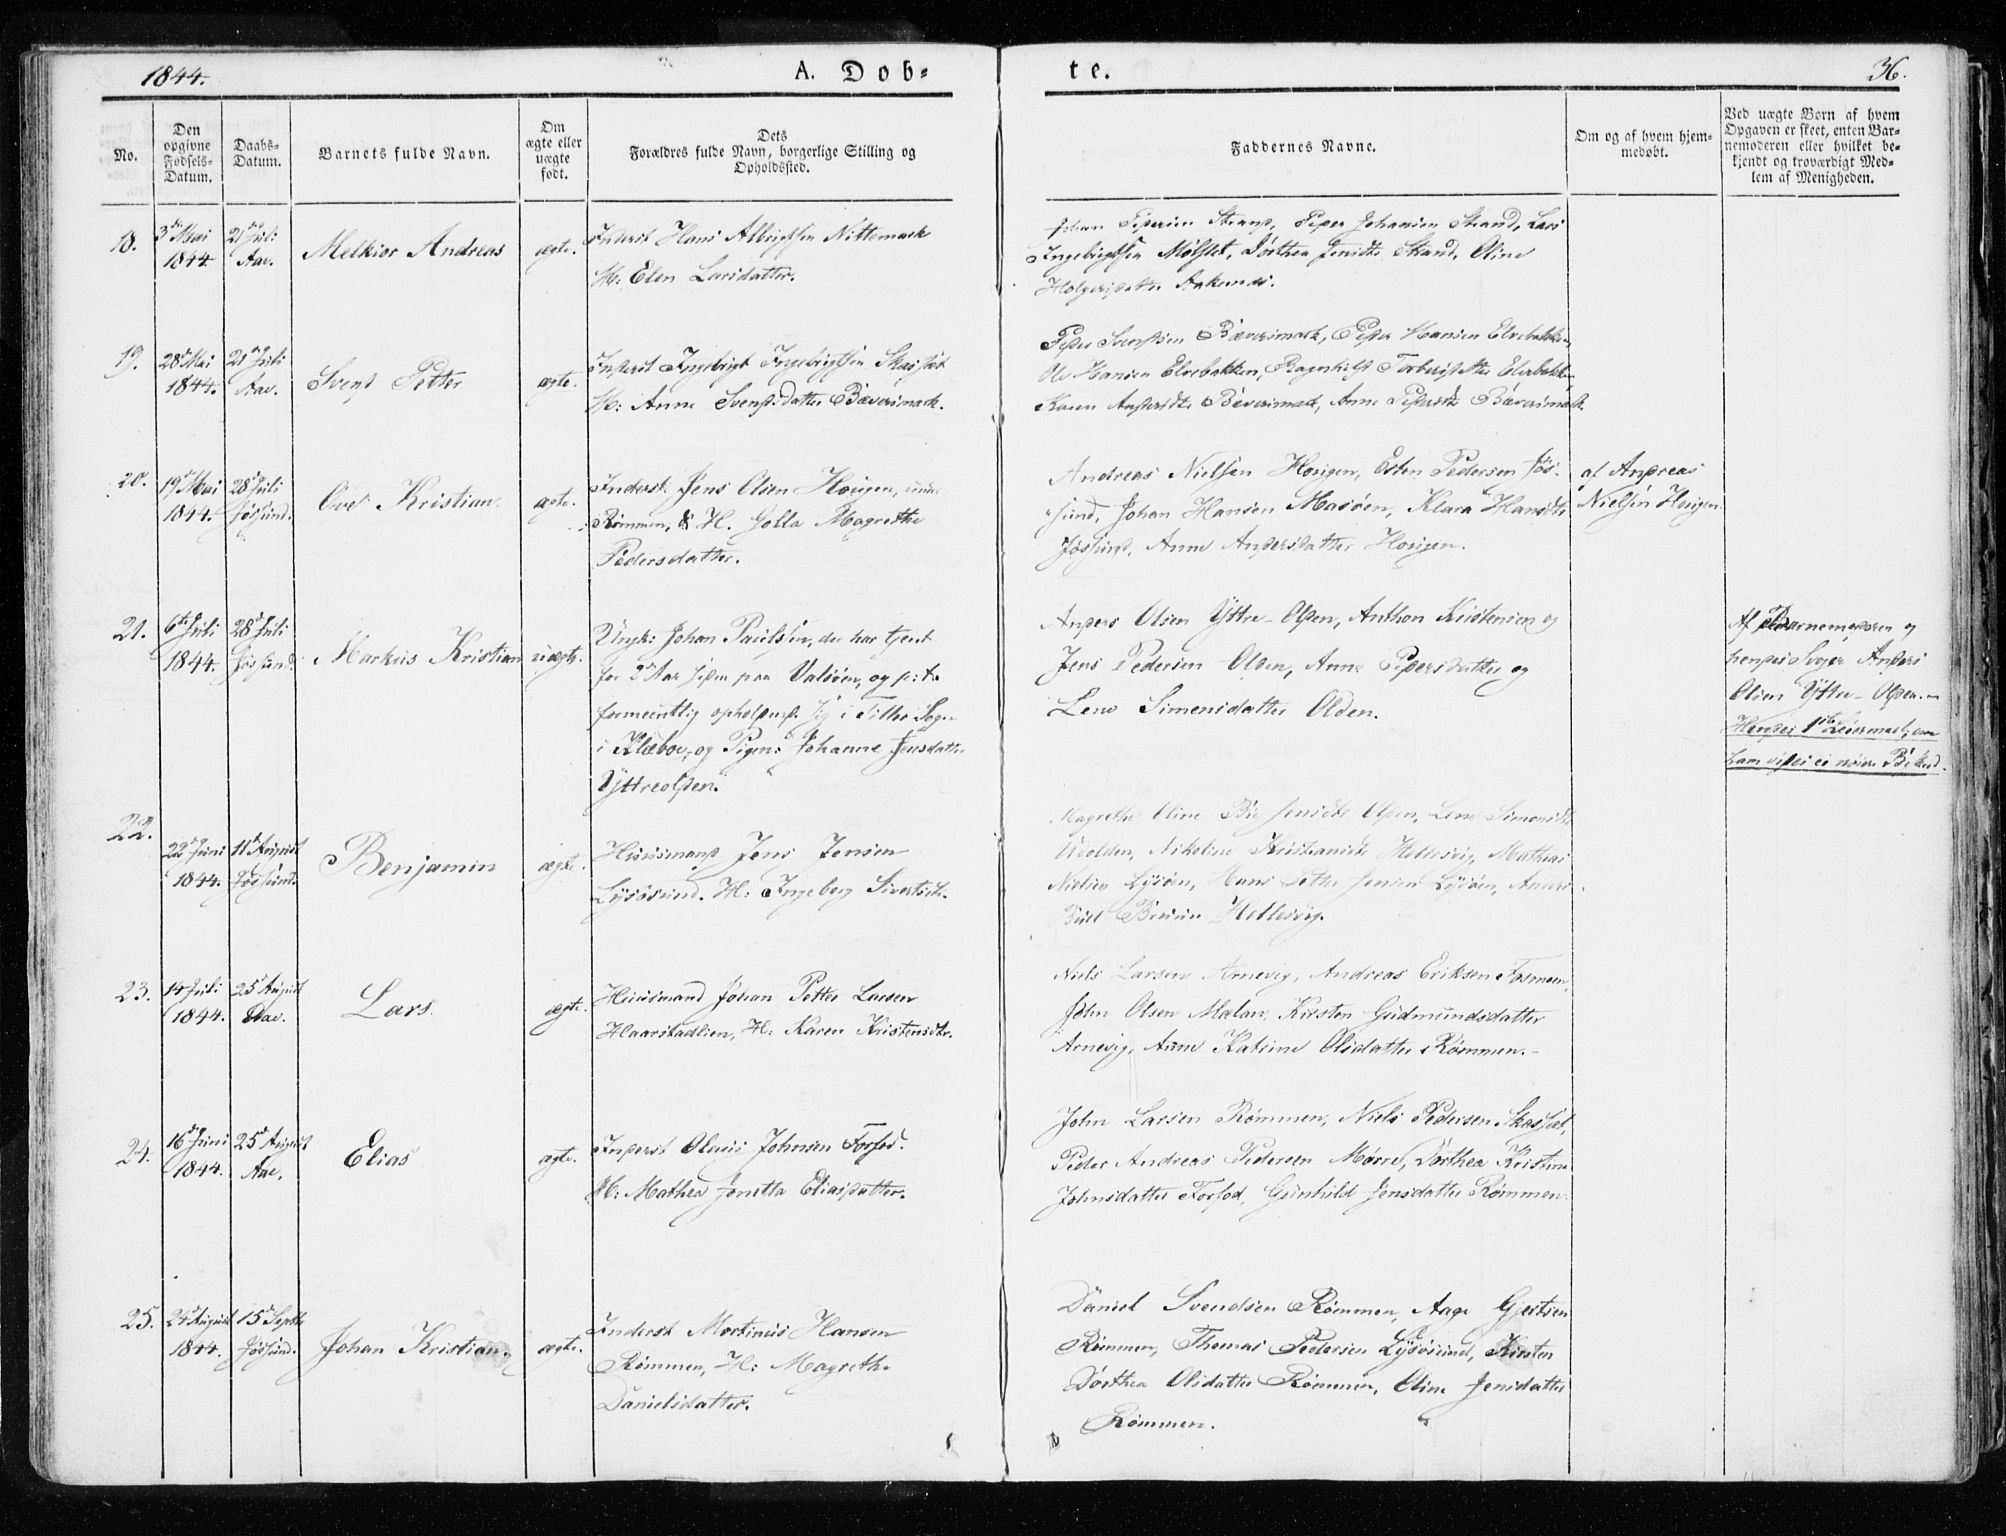 1844.
A. Døb-
te.
36.
No.
Den opgivne Fødsels-Datum.
Daabs-Datum.
Barnets fulde Navn.
Om ægte eller uægte født.
Dets
Forældres fulde Navn, borgerlige Stilling og
Opholdssted.
Faddernes Navne.
Om og af hvem hjem-
medøbt.
Ved uægte Børn af hvem
Opgaven er skeet, enten Bar-
nemoderen eller hvilket be-
kjendt og troværdigt Med-
lem af Menigheden.
18.
3de Mai
1844.
21de Juli
Aae.
Melkior Andreas
ægte.
Inderst Hans Albrigtsen Nittemark
H: Elen Larsdatter.
Johan Strand, Peder Johansen Strand, Lars
Ingebrigtsen Dorthea Jensdtr Strand, Oline
Holgersdatter
19.
28d Mai
1844.
21de Juli
Aae.
Svend Petter
ægte.
Inderst Ingebrigt Ingebrigtsen
H: Anne Svendsdatter Bæversmark.
Peder Svendsen Bæversmark, Peder Hansen Elvebakken,
Ole Hansen Elvebakken, Ragnhild Torbersdatter Elvebakken
Karen Andersdtr Bæversmark, Anne Pedersdtr Bæversmark.
20.
19d Mai
1844.
28d Juli
Jøssund.
Ove Kristian.
ægte.
Inderst Jens Olsen Hougen,
Rømmen, & H. Golla Magrethe
Pedersdatter.
Andreas Nielsen Hougen, Esten Pedersen Jøs-
sund, Johan Hansen Masøen, Klara Hansdtr
Jøssund, Anne Andersdatter Hougen.
af Andreas
Nielsen Hougen
21.
6te Juli
1844.
28d Juli
Jøssund.
Markus Kristian
uægte.
Ungk: Johan Paulsen, der har tjent
for 2 Aar siden paa Valsøen, og p: t:
formeentlig opholdende sig i Tiller Sogn
i Klæboe, og Pigen: Johanne Jensdatter
Yttreolden.
Anders Olsen Yttre-Olden, Anthon Kristensen og
Jens Pedersen Olden, Anne Pedersdatter og
Lene Simensdatter Olden.
Af Barnemoderen og
hendes Svoger Anders
Olsen Yttre-Olden.
Hendes 1ste Leiermaal; om
ham vides ei nøiere Beked.
22.
22d Juni
1844.
11te August
Jøssund.
Benjamin
ægte.
Huusmand Jens Jensen
Lysøsund. H: Ingeborg Sivertsdtr.
Magrethe Oline Jensdtr Olden, Lene Simonsdtr
Nikoline Kristiansdtr Hellesvig, Mathias
Nielsen Lysøen, Hans Petter Jensen Lysøen,
Hellesvig.
23.
14 Juli
1844.
25d August
Aae.
Lars.
ægte.
Huusmand Johan Petter Larsen
Haarstadlien, H: Karen Kristensdtr.
Niels Larsen Arnevig, Andreas Eriksen Tosmen,
John Olsen Malan, Kirsten Gudmundsdatter
Arnevig, Anne Katrine Olsdatter Rømmen.
24.
16d Juni
1844.
25d August
Aae.
Elias
ægte.
Inderst Olaus Johnsen Forfod.
H: Mathea Jonetta Eliasdatter.
John Larsen Rømmen, Niels Pedersen
Peder Andreas Pedersen Mørre, Dorthea Kristine
Johnsdatter Forfod, Gunhild Jensdatter Rømmen.
25.
24d August
1844.
15d Septbr
Jøssund.
Johan Kristian
ægte.
Inderst Mortinus Hansen
Rømmen, H: Magrethe
Danielsdatter.
Daniel Svendsen Rømmen, Aage Gjertsen
Rømmen, Thomas Pedersen Lysøsund, Kirsten
Dorthea Olsdatter Rømmen, Oline Jensdatter
Rømmen.